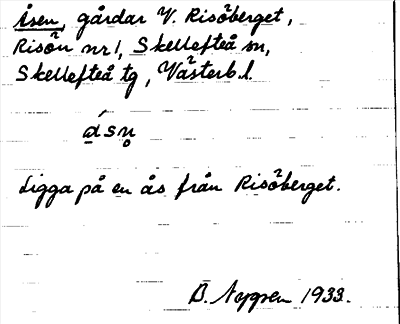 Åsen, gårdar V. Risöberget,
Risön nr 1, Skellefteå sn,
Skellefteå tg, Västerb. l.
ásn̥
Ligga på en ås från Risöberget.
B. Nygren 1933.